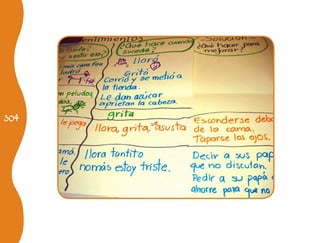 304
entimientos
- Solución -
¿Qué hace cuando
suceda?
¿Qué hacer para
mejorar?
lloró
Gritó
Corrió y se metió a
la tienda.
Le dan azúcar
aprietan la cabeza.
grita
n peludos,
le pega,
llora, grita, asusta
Esconderse deba
de la cama.
Taparse los ojos.
amá,
le
ero
llora tantito
nomás estoy triste.
Decir a sus pap
que no discutan.
Pedir a su papá
ahorre para que no